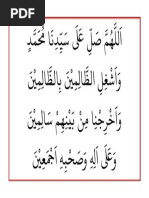 اَللّٰهُمَّ صَلِّ عَلَى سَيِّدِنَا مُحَمَّدٍ
وَاَشْغِلِ الظَّالِمِيْنَ بِالظَّالِمِيْنَ
وَاَخْرِجْنَا مِنْ بَيْنِهِمْ سَالِمِيْنَ
وَعَلَى اٰلِهِ وَصَحْبِهِ اَجْمَعِيْنَ